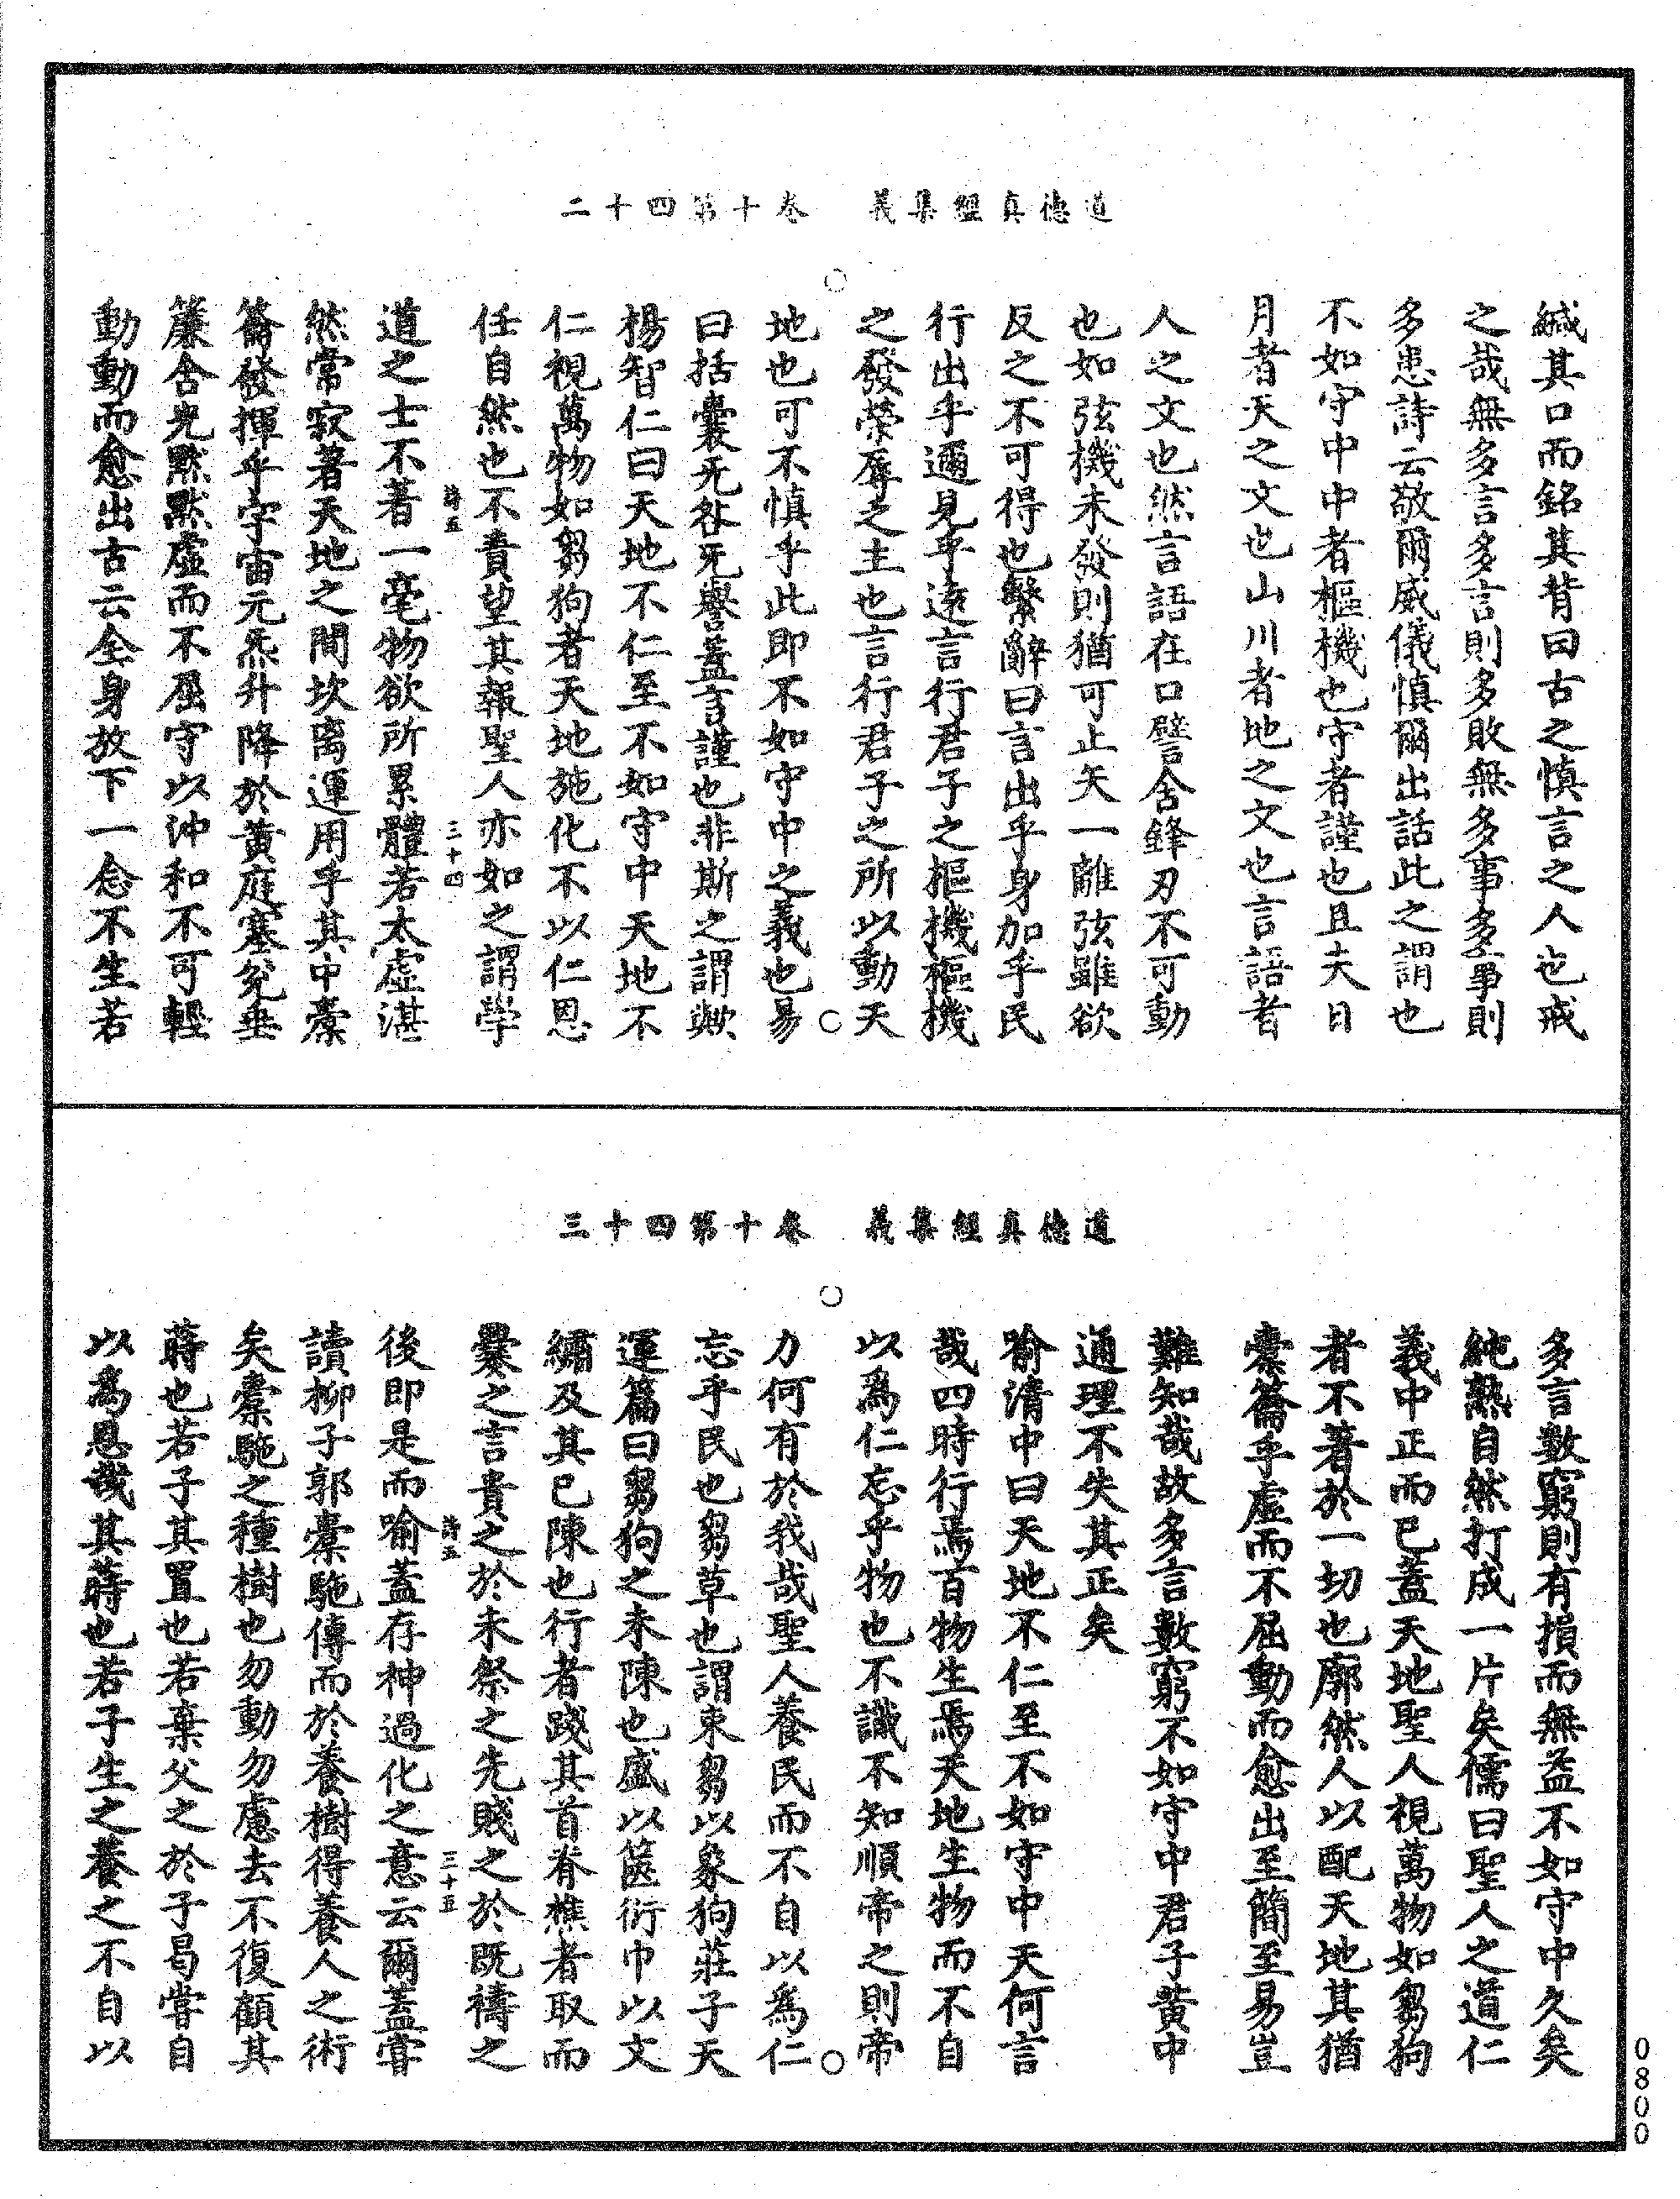 道德真經集義　卷十第四十二
緘其口而銘其背曰古之慎言之人也戒
之哉無多言多言則多敗無多事多事則
多患詩云敬爾威儀慎爾出話此之謂也
不如守中中者樞機也守者謹也且夫日
月者天之文也山川者地之文也言語者
人之文也然言語在口譬含鋒刃不可動
也如弦機未發則猶可止矢一離弦雖欲
反之不可得也繫辭曰言出乎身加乎民
行出乎邇見乎遠言行君子之樞機樞機
之發榮辱之主也言行君子之所以動天
地也可不慎乎此即不如守中之義也易
曰括囊无咎无譽蓋言謹也非斯之謂歟
楊智仁曰天地不仁至不如守中天地不
仁視萬物如芻狗者天地施化不以仁恩
任自然也不責望其報聖人亦如之謂學
詩五　三十四
道之士不著一毫物欲所累體若太虛湛
然常寂著天地之間坎离運用乎其中橐
籥發揮乎宇宙元炁升降於黃庭塞兌垂
簾含光默默虛而不屈守以沖和不可輕
動動而愈出古云全身放下一念不生若
道德真經集義　卷十第四十三
多言數窮則有損而無益不如守中久矣
純熟自然打成一片矣儒曰聖人之道仁
義中正而已蓋天地聖人視萬物如芻狗
者不著於一切也廓然人以配天地其猶
橐籥乎虛而不屈動而愈出至簡至易豈
難知哉故多言數窮不如守中君子黃中
通理不失其正矣
喻清中曰天地不仁至不如守中天何言
哉四時行焉百物生焉天地生物而不自
以為仁忘乎物也不識不知順帝之則帝
力何有於我哉聖人養民而不自以為仁
忘乎民也芻草也謂束芻以象狗莊子天
運篇曰芻狗之未陳也盛以篋衍巾以文
繡及其已陳也行者踐其首脊樵者取而
爨之言貴之於未祭之先賤之於既禱之
詩五　三十五
後即是而喻蓋存神過化之意云爾蓋嘗
讀柳子郭橐駞傳而於養樹得養人之術
矣橐駞之種樹也勿動勿慮去不復顧其
蒔也若子其置也若棄父之於子曷嘗自
以為恩哉其蒔也若子生之養之不自以
0800